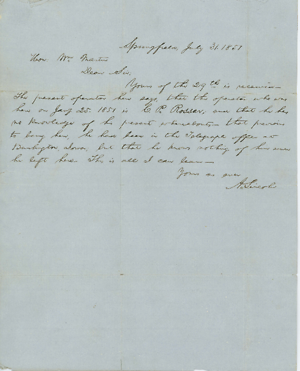 Springfield, July 31. 1851
Hon. Wm. Martin
Dear Sir,
Yours of the 29th is received
The present operator here says that the operator who was
here on Jany 25. 1851 is C. P. Rosser, and that he has
no knowledge of his present whereabouts that previous
to being here, he had been in the Telegraph office at
Burlington Iowa, but that he knows nothing of him since
he left here. This is all I can learn—
Yours as ever
A. Lincoln